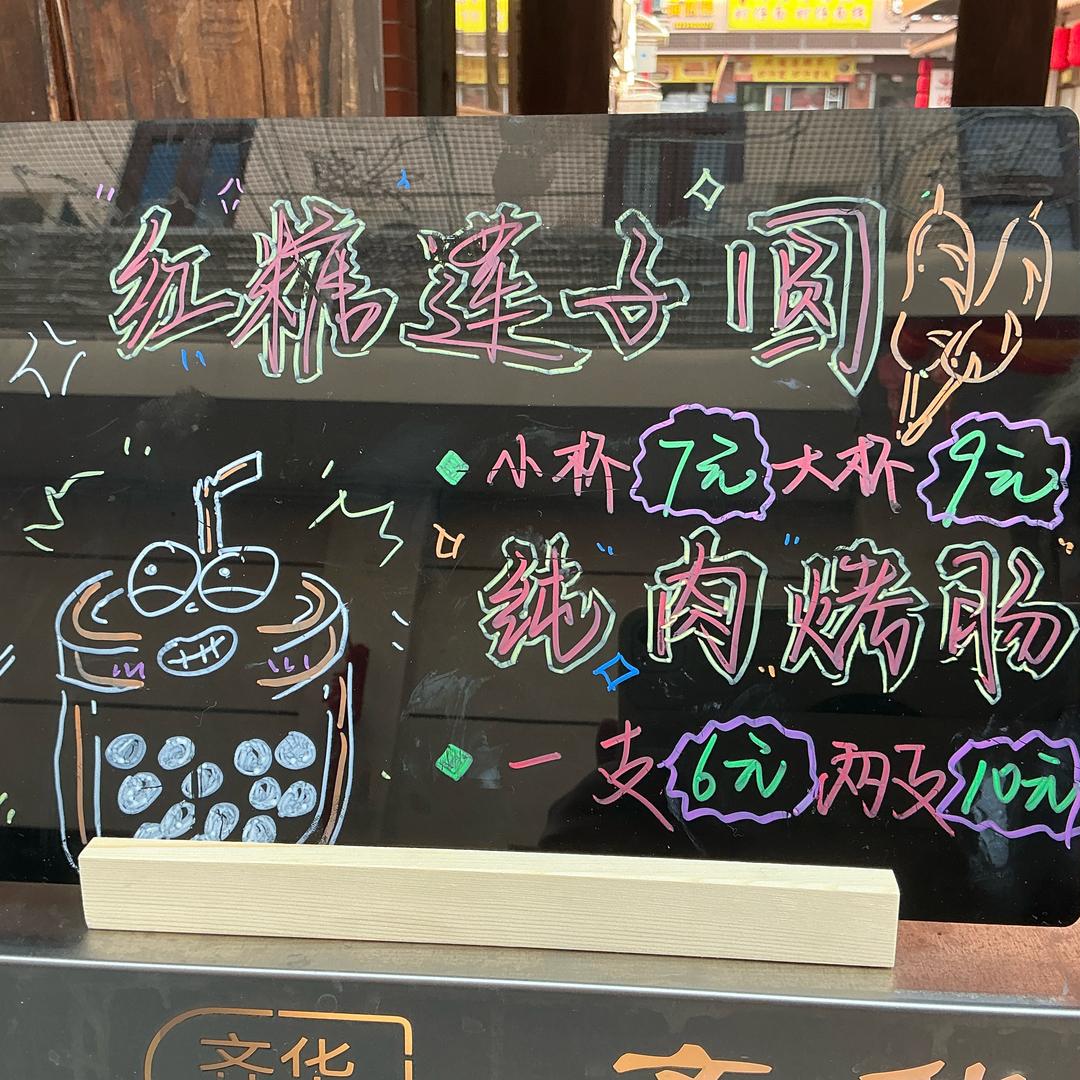 红糖莲子圆
小杯 7元 大杯 9元
纯肉烤肠
一支 6元 两支 10元
文化